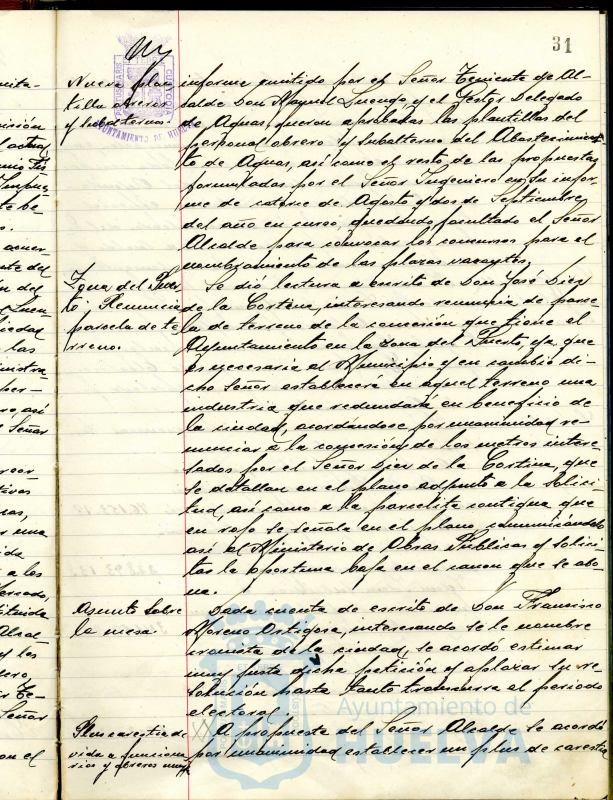 31
Nueva plan
tilla obreros
y subalternos.
informe emitido por el Señor Teniente de Al-
calde Don Manuel Luengo, y el Gestor Delegado
de Aguas, fueron aprobadas las plantillas del
personal obrero y subalterno del Abastecimien-
to de Aguas, así como el resto de las propuestas
formuladas por el Señor Ingeniero en su infor-
me de catorce de Agosto y dos de Septiembre
del año en curso, quedando facultado el Señor
Alcalde para convocar los concursos para el
nombramiento de las plazas vacantes.
Zona del Puer
to. Renuncia
parcela de te
rreno.
Se dió lectura a escrito de Don José Diez
de la Cortina, interesando renuncia de parce-
la de terreno de la concesión que tiene el
Ayuntamiento en la zona del Puerto, ya que
es necesaria al Municipio y en cambio di-
cho Señor establecerá en aquel terreno una
industria que redundará en beneficio de
la ciudad, acordándose por unanimidad re-
nunciar a la concesión de los metros intere-
sados por el Señor Diez de la Cortina, que
se detallan en el plano adjunto a la solici-
tud, así como a la parcelita contigua que
en rojo se señala en el plano, comunicándolo
así al Ministerio de Obras Públicas y solici-
tar la oportuna baja en el canon que se abo-
na.
Asunto sobre
la mesa.
Dada cuenta de escrito de Don Francisco
Moreno Ortigosa, interesando se le nombre
cronista de la ciudad, se acordó estimar
muy justa dicha petición y aplazar su re-
solución hasta tanto transcurra el periodo
electoral.
Plus carestia de
vida a funciona
rios y obreros
A propuesta del Señor Alcalde se acordó
por unanimidad establecer un plus de carestia
AYUNTAMIENTO DE HUELVA
CUSTODIA
Ayuntamiento de
HUELVA